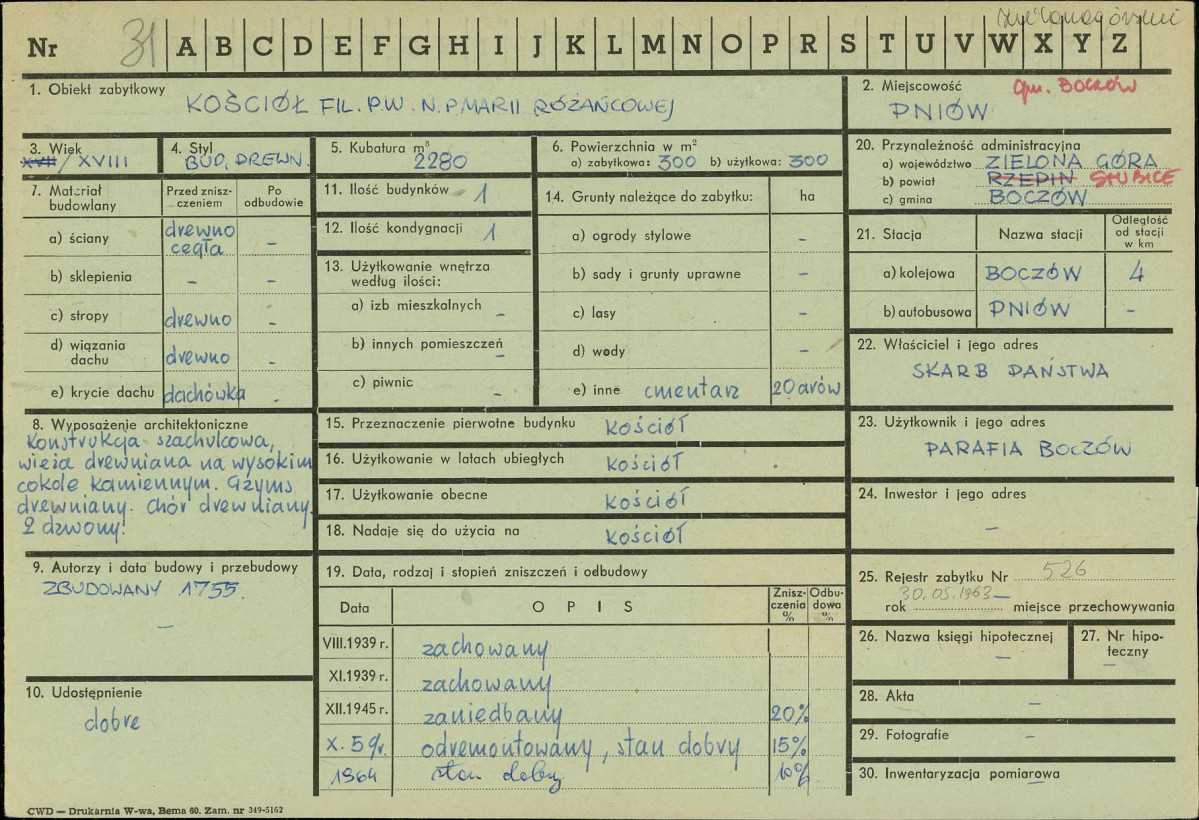 zielonogórskie
Nr 31 A B C D E F G H I J K L M N O P R S T U V W X Y Z
1. Obiekt zabytkowy
KOŚCIÓŁ FIL. P.W. N.P.MARII RÓŻAŃCOWEJ
2. Miejscowość
gm. BOCZÓW
PNIÓW
3. Wiek
XVII/XVIII
4. Styl
BUD. DREWN.
5. Kubatura m³
2280
6. Powierzchnia w m²
a) zabytkowa: 300 b) użytkowa: 300
20. Przynależność administracyjna
a) województwo ZIELONA GÓRA
b) powiat RZEPIN SŁUBICE
c) gmina BOCZÓW
7. Materiał budowlany
Przed zniszczeniem
Po odbudowie
a) ściany drewno cegła -
b) sklepienia - -
c) stropy drewno -
d) wiązania dachu drewno -
e) krycie dachu dachówka -
11. Ilość budynków 1
12. Ilość kondygnacji 1
13. Użytkowanie wnętrza według ilości:
a) izb mieszkalnych -
b) innych pomieszczeń -
c) piwnic -
14. Grunty należące do zabytku: ha
a) ogrody stylowe -
b) sady i grunty uprawne -
c) lasy -
d) wody -
e) inne cmentarz 20 arów
21. Stacja
Nazwa stacji
Odległość od stacji w km
a) kolejowa BOCZÓW 4
b) autobusowa PNIÓW -
22. Właściciel i jego adres
SKARB PAŃSTWA
8. Wyposażenie architektoniczne
Konstrukcja szachulcowa,
wieża drewniana na wysokim
cokole kamiennym. Gzyms
drewniany. Chór drewniany.
2 dzwony.
15. Przeznaczenie pierwotne budynku kościół
16. Użytkowanie w latach ubiegłych kościół
17. Użytkowanie obecne kościół
18. Nadaje się do użycia na kościół
23. Użytkownik i jego adres
PARAFIA BOCZÓW
24. Inwestor i jego adres
-
9. Autorzy i data budowy i przebudowy
ZBUDOWANY 1755.
-
10. Udostępnienie
dobre
19. Data, rodzaj i stopień zniszczeń i odbudowy
Data OPIS Zniszczenia % Odbudowa %
VIII.1939 r. zachowany
XI.1939 r. zachowany
XII.1945 r. zaniedbany 20%
X. 59r. odremontowany, stan dobry 15%
1964 stan dobry 10%
25. Rejestr zabytku Nr 526
30.05.1963 -
rok miejsce przechowywania
26. Nazwa księgi hipotecznej
-
27. Nr hipoteczny
-
28. Akta -
29. Fotografie -
30. Inwentaryzacja pomiarowa -
CWD — Drukarnia W-wa, Bema 60. Zam. nr 349-5162